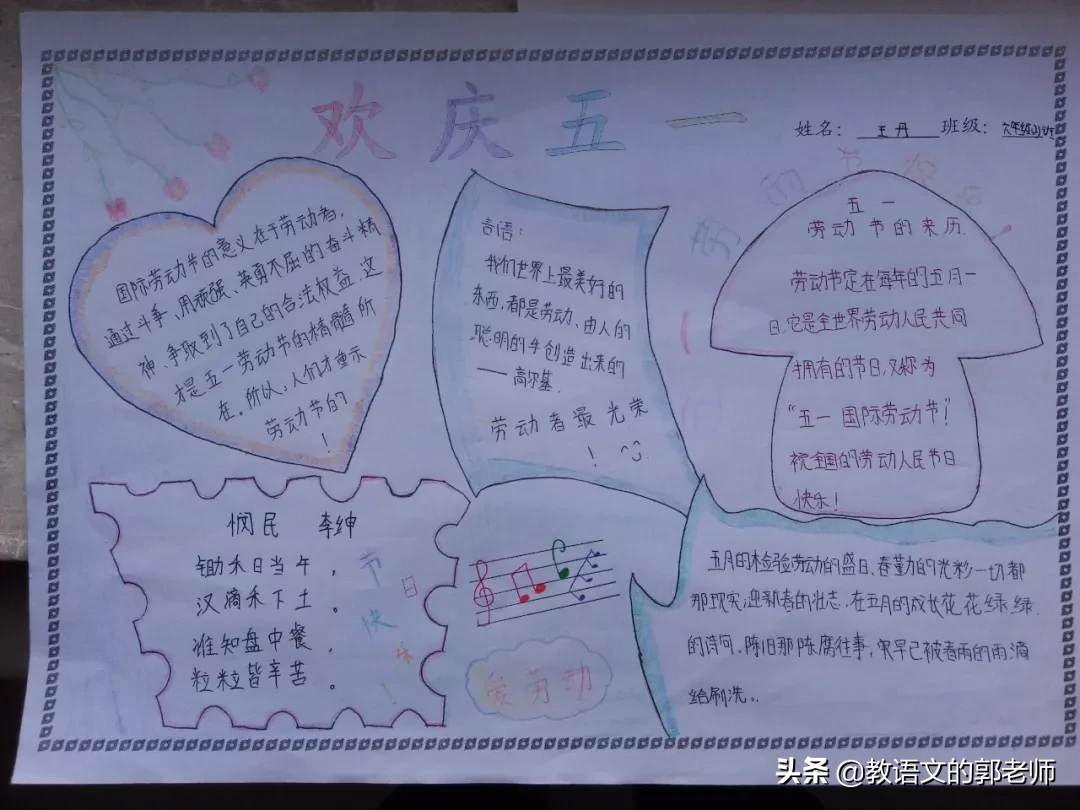 欢庆五一
姓名：王丹 班级：六年级
国际劳动节的意义在于劳动者，
通过斗争、用顽强、英勇不屈的奋斗精
神、争取到了自己的合法权益，这
才是五一劳动节的精髓所
在。所以，人们才重示
劳动节的
！
言语：
我们世界上最美好的
东西，都是劳动、由人的
聪明的手创造出来的
——高尔基.
劳动者最光荣
！
五一
劳动节的来历.
劳动节定在每年的五月一
日，它是全世界劳动人民共同
拥有的节日，又称为
“五一国际劳动节”！
祝全国的劳动人民节日
快乐！
悯民 李绅
锄禾日当午，
汉滴禾下土。
谁知盘中餐，
粒粒皆辛苦。
节
日
快
乐
！
爱劳动
五月的检验劳动的盛日、春勤的光彩一切都
那现实，迎新春的壮志，在五月的成长花花绿绿.
的诗问，陈旧那陈腐往事，早已被春雨的雨滴
给刷洗..
头条 @教语文的郭老师